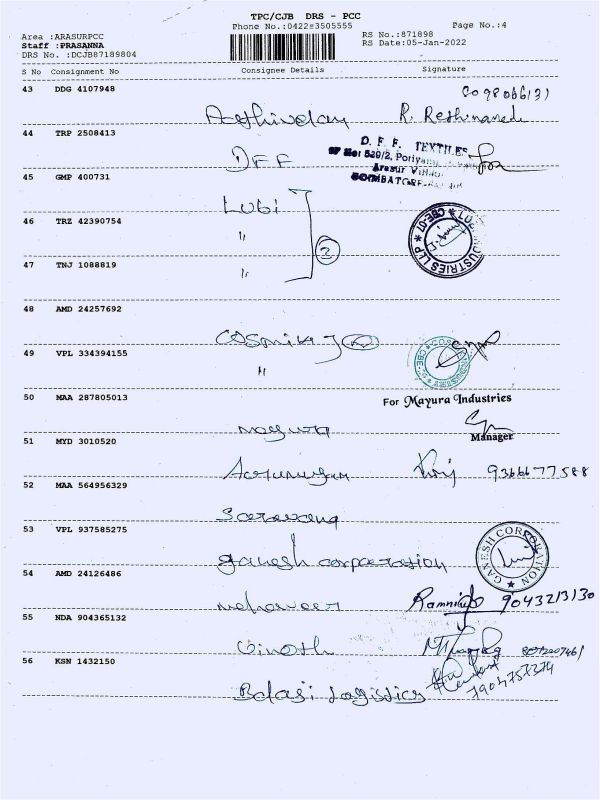 TPC/CJB DRS - PCC
Phone No.:0422#3505555 Page No.:4
Area :ARASURPCC RS No.:871898
Staff :PRASANNA RS Date:05-Jan-2022
DRS No. :DCJB87189804
S No Consignment No Consignee Details Signature
43 DDG 4107948
44 TRP 2508413 DFF D. F. F. TEXTILES
45 GMP 400731 Lubi
46 TRZ 42390754 "
2
47 TNJ 1088819 "
48 AMD 24257692
49 VPL 334394155 "
50 MAA 287805013 For Mayura Industries
mayura Manager
51 MYD 3010520
9366677588
52 MAA 564956329
Saravana
53 VPL 937585275
ganesh corporation GANESH CORPORATION
54 AMD 24126486
mahaveer 9043213130
55 NDA 904365132
Vinoth
56 KSN 1432150
Balaji Logistics 7904757374